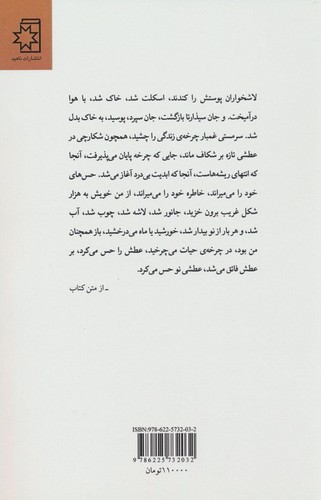 انتشارات ناهید
لاشخواران پوستش را کندند، اسکلت شد، خاک شد، با هوا
درآمیخت. و جان سیذارتا بازگشت، جان سپرد، پوسید، به خاک بدل
شد. سرمستی غمبار چرخه‌ی زندگی را چشید، همچون شکارچی در
عطشی تازه بر شکاف ماند، جایی که چرخه پایان می‌پذیرفت، آنجا
که انتهای ریشه‌هاست، آنجا که ابدیت بی‌درد آغاز می‌شد. حس‌های
خود را می‌میراند، خاطره خود را می‌میراند، از من خویش به هزار
شکل غریب برون خزید، جانور شد، لاشه شد، چوب شد، آب
شد، و هر بار از نو بیدار شد، خورشید یا ماه می‌درخشید، باز همچنان
من بود، در چرخه‌ی حیات می‌چرخید، عطش را حس می‌کرد، بر
عطش فائق می‌شد، عطشی نو حس می‌کرد.
ـ از متن کتاب
ISBN: 978-622-5732-03-2
9 786225 732032
۱۱۰۰۰۰ تومان